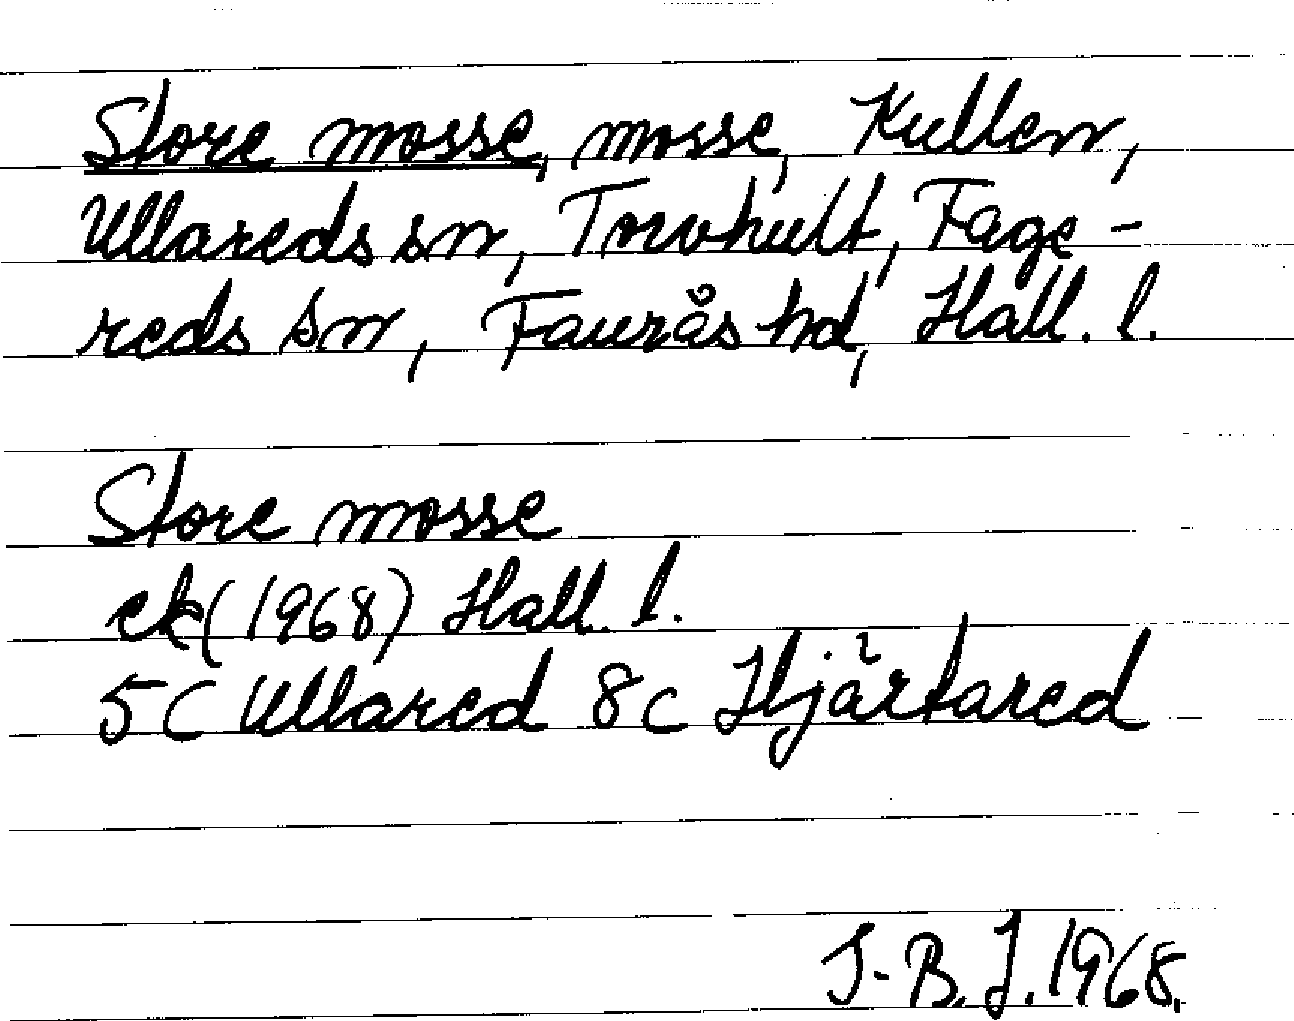 Store mosse, mosse, Kullen,
Ullareds sn, Torvhult, Fage-
reds sn, Faurås hd, Hall. l.
Store mosse
ek (1968) Hall. l.
5c Ullared 8c Hjärtared
J-B. J. 1968.